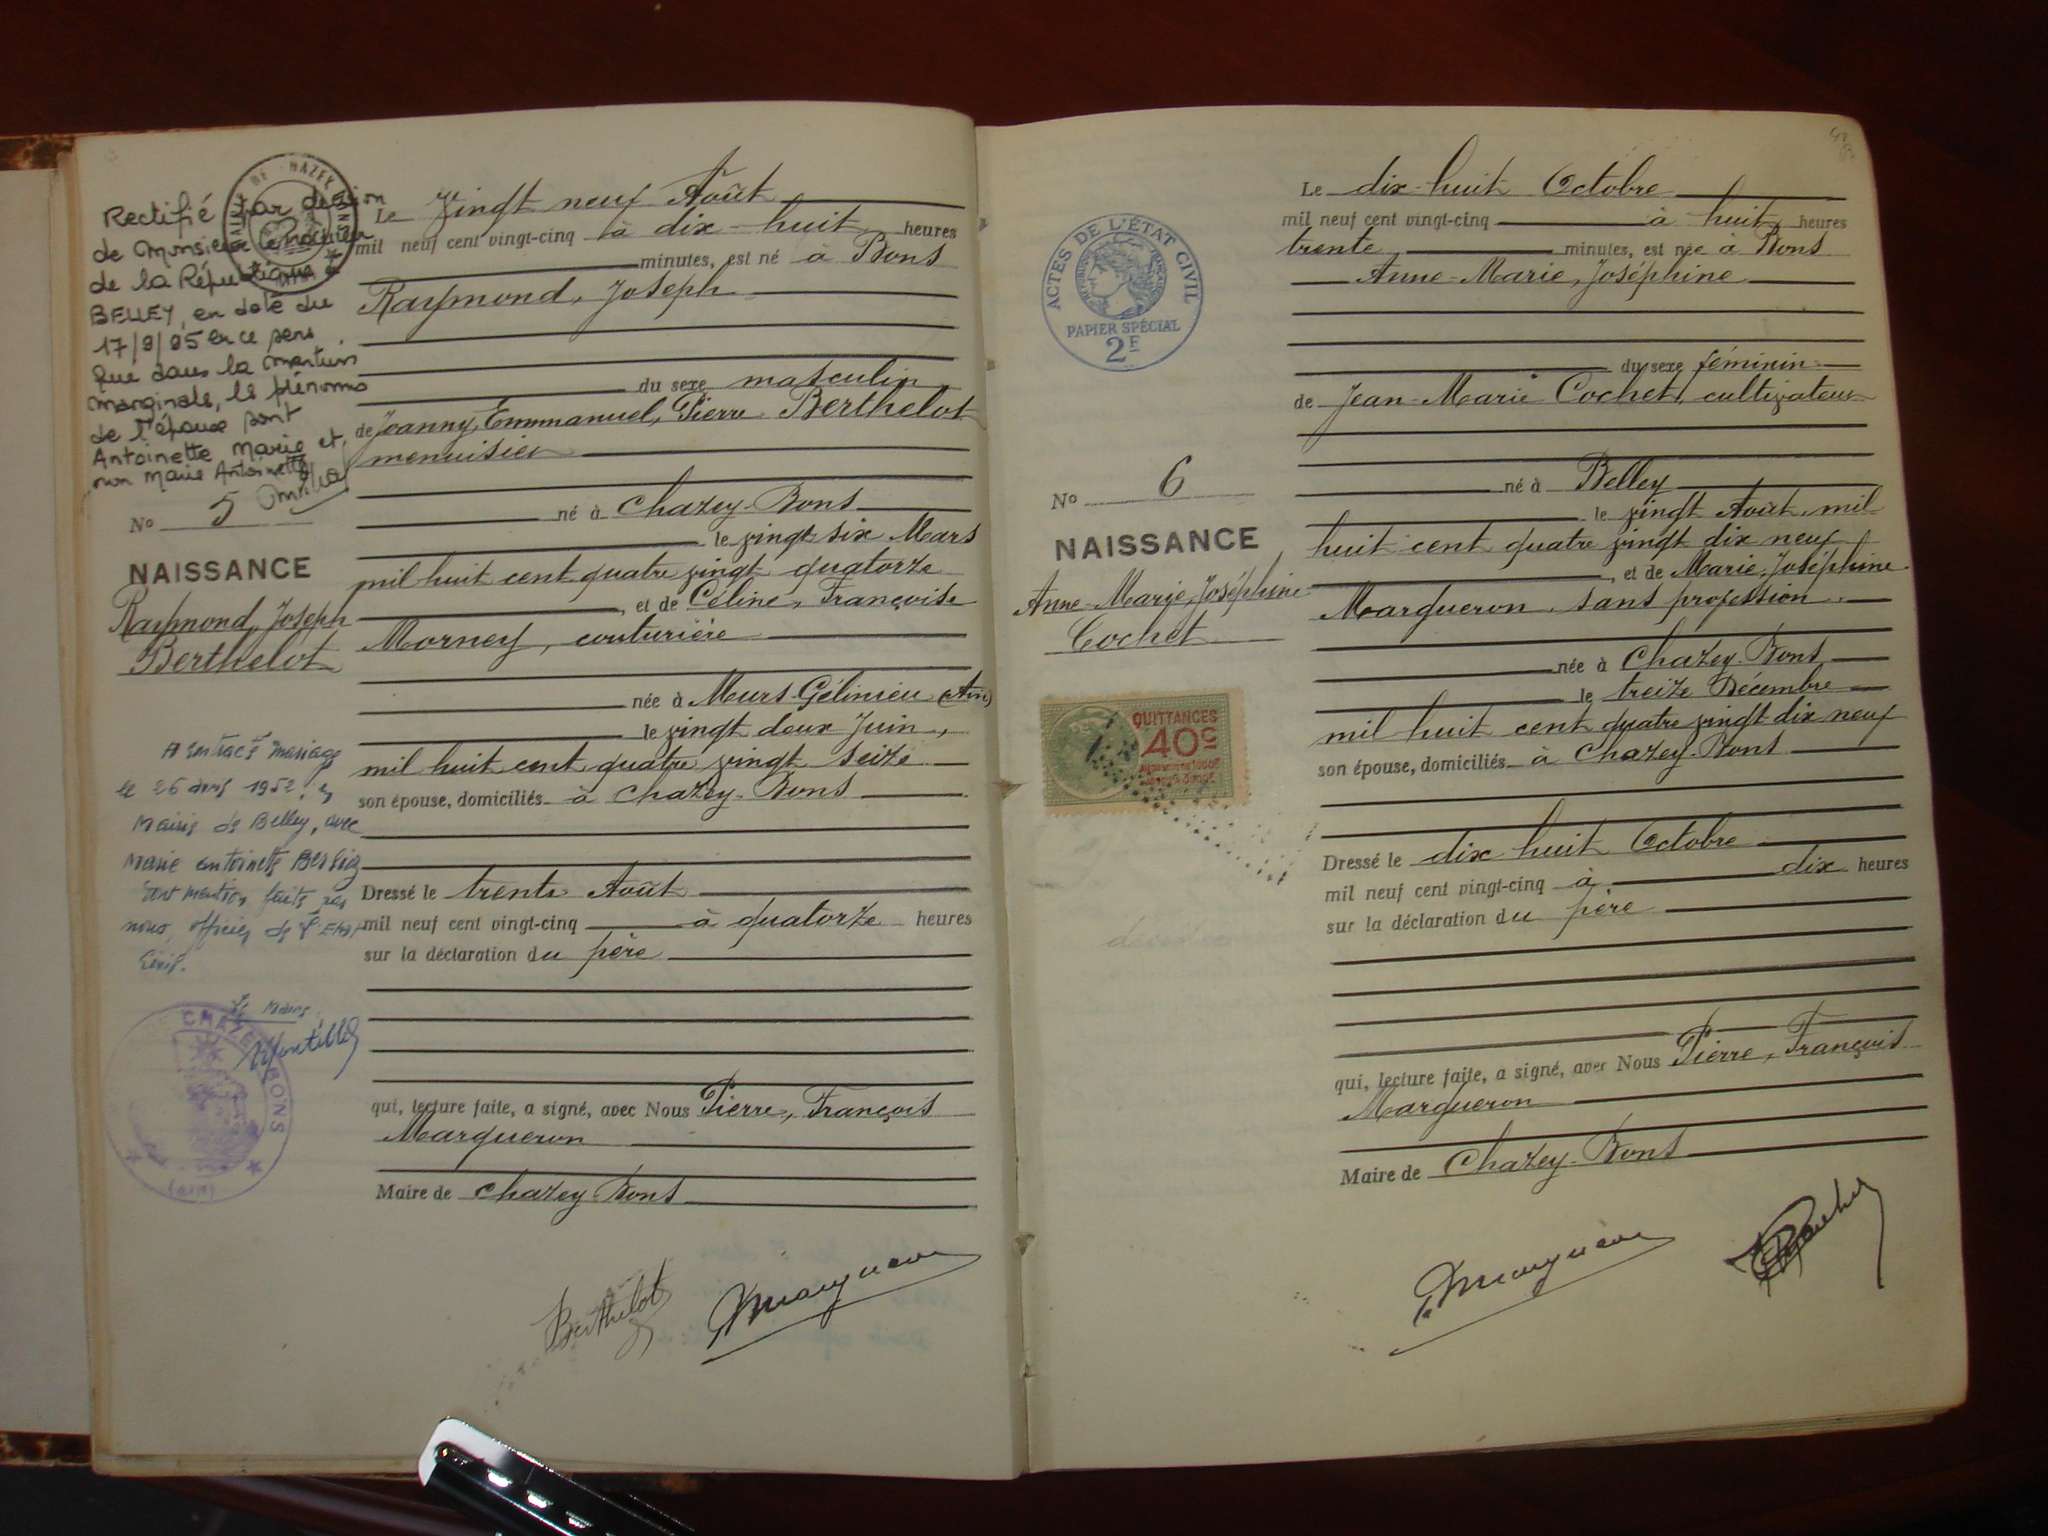 Rectifié par décision
de Monsieur le Procureur
de la République à
BELLEY, en date du
17/9/85 en ce sens
que dans la mention
marginale, les prénoms
de l'épouse sont
Antoinette Marie et
non Marie Antoinette
No 5
NAISSANCE
Raymond, Joseph
Berthelot
A contracté mariage
le 26 avril 1952, en
Mairie de Belley, avec
Marie Antoinette
nous, officier de l'Etat
Civil.
Le Maire
CHAZEY BONS
(AIN)
Le Vingt neuf Août
mil neuf cent vingt-cinq à dix-huit heures
minutes, est né à Bons
Raymond, Joseph
du sexe masculin
de Jeanny, Emmanuel, Pierre Berthelot
menuisier
né à Chazey-Bons
le vingt six Mars
mil huit cent quatre vingt quatorze
, et de Céline, Françoise
Morney, couturière
née à Murs-Gélinieu (Ain)
le vingt deux Juin,
mil huit cent quatre vingt seize
son épouse, domiciliés à Chazey-Bons
Dressé le trente Août
mil neuf cent vingt-cinq à quatorze heures
sur la déclaration du père
qui, lecture faite, a signé, avec Nous Pierre, François
Margueron
Maire de Chazey-Bons
Berthelot Margueron
ACTES DE L'ÉTAT CIVIL
PAPIER SPÉCIAL
2F
No 6
NAISSANCE
Anne-Marie, Joséphine
Cochet
QUITTANCES
40c
Le dix-huit Octobre
mil neuf cent vingt-cinq à huit heures
trente minutes, est née à Bons
Anne-Marie, Joséphine
du sexe féminin
de Jean-Marie Cochet, cultivateur
né à Belley
le vingt Août, mil
huit cent quatre vingt dix neuf
, et de Marie, Joséphine
Margueron, sans profession
née à Chazey-Bons
le treize Décembre
mil huit cent quatre vingt-dix neuf
son épouse, domiciliés à Chazey-Bons
Dressé le dix huit Octobre
mil neuf cent vingt-cinq à dix heures
sur la déclaration du père
qui, lecture faite, a signé, avec Nous Pierre, François
Margueron
Maire de Chazey-Bons
Margueron